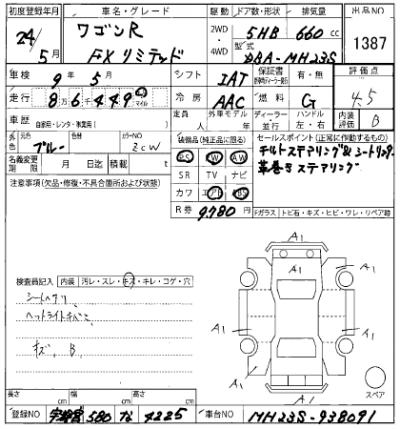 初度登録年月 車名・グレード 駆動 ドア数・形状 排気量 出品NO
24/5月 ワゴンR FXリミテッド 2WD 4WD 5HB 660cc 1387
型式 DBA-MH23S
車検 9年5月 シフト IAT 保証書 有・無 評価点 4.5
走行 86,449 km マイル 冷房 AAC 燃料 G
車歴 自家用・レンタ・事業用( ) 定員 人 外車モデル 年 ディーラー 並行 ハンドル 左・右 内装評価 B
元色 色 ブルー カラーNO ZCW 装備品(純正品に限る) セールスポイント(正常に作動するもの)
PS PW AW チルトステアリング&シートリフター
名義変更期限 月 日迄 積載 t SR TV ナビ 革巻きステアリング
注意事項(欠品・修復・不具合箇所および状態) カワ エアB ABS
R券 9780円 Fガラス トビ石・キズ・ヒビ・ワレ・リペア跡
A1
A1 A1
検査員記入 内装 汚レ・スレ・キズ・キレ・コゲ・穴
A1 A1
シートヘタリ
ヘッドライト
キズ、B
A1 A1
スペア
A1
長さ cm 幅 cm 高さ cm
登録NO 宇都宮 580 な 4225 車台NO MH23S-938091